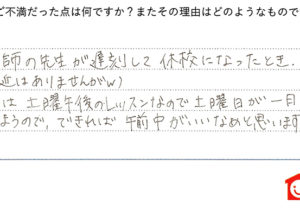 ご不満だった点は何ですか？またその理由はどのようなもので
師の先生が遅刻して休校になったとき.
近はありませんがw)
は 土曜午後のレッスンなので土曜日が一日
ようので、できれば 午前中がいいなぁと思います